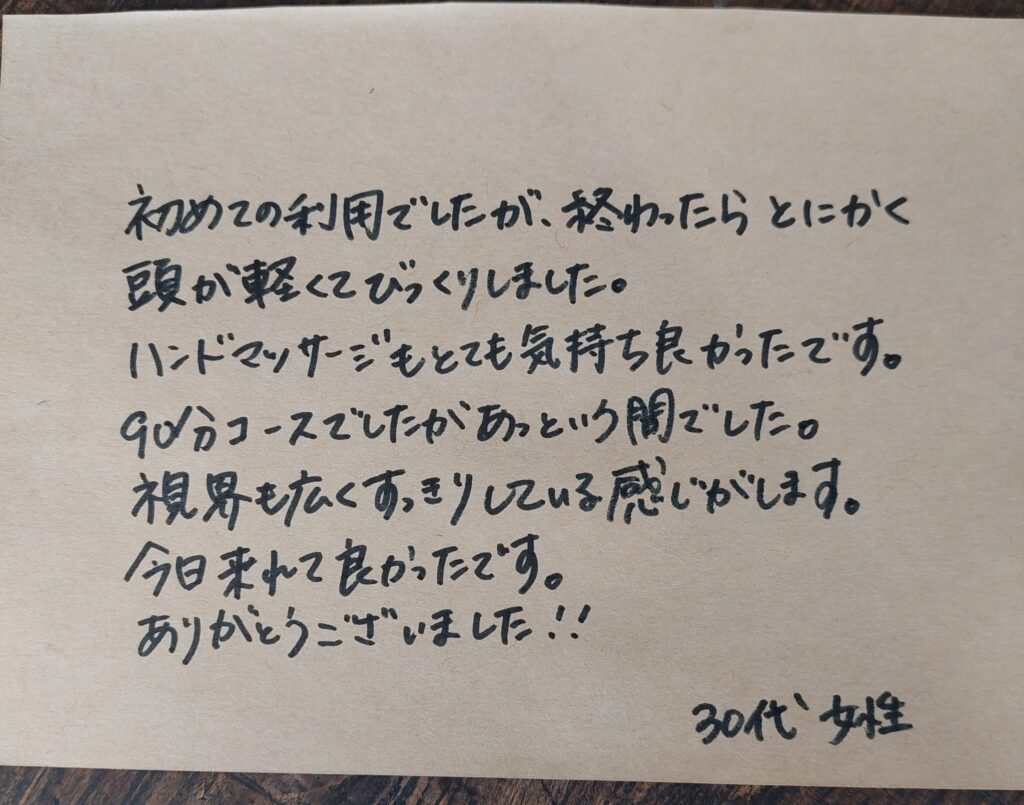 初めての利用でしたが、終わったら とにかく
頭が軽くてびっくりしました。
ハンドマッサージもとても気持ち良かったです。
90分コースでしたがあっという間でした。
視界も広くすっきりしている感じがします。
今日来れて良かったです。
ありがとうございました!!
30代 女性